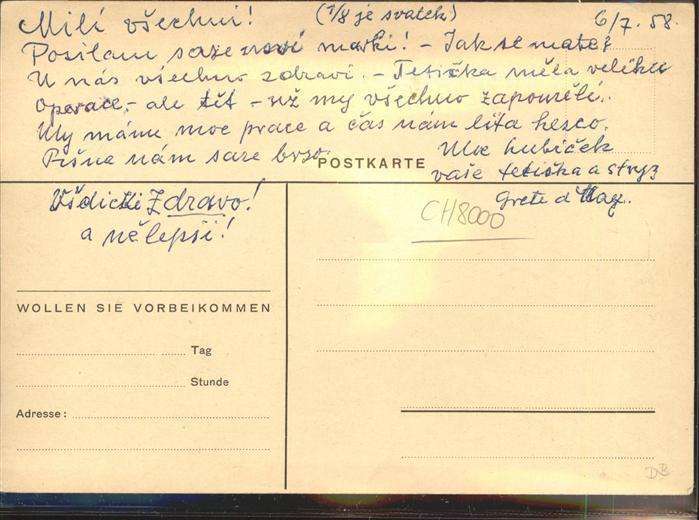 Milí všechni! (1/8 je svatek) 6/7. 58.
Posílam saze noví marki! - Jak se mate?
U nás všechno zdraví. - Tetička měla veliku
operace, - ale teť - už my všechno zapoměli.
My máme moc prace a čas nám lítá hezco.
Pišne nám saze brzo.
POSTKARTE
Moc hubiček
vaše tetička a stryz
Grete a
Všdicki Zdravo!
a nělepší!
CH8000
WOLLEN SIE VORBEIKOMMEN
Tag
Stunde
Adresse:
DB